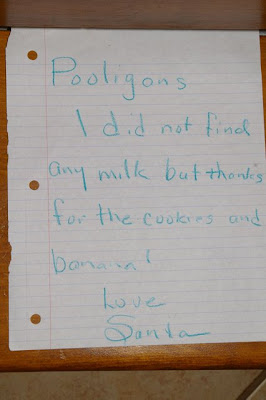 Pooligans
I did not find
any milk but thanks
for the cookies and
banana!
Love
Santa